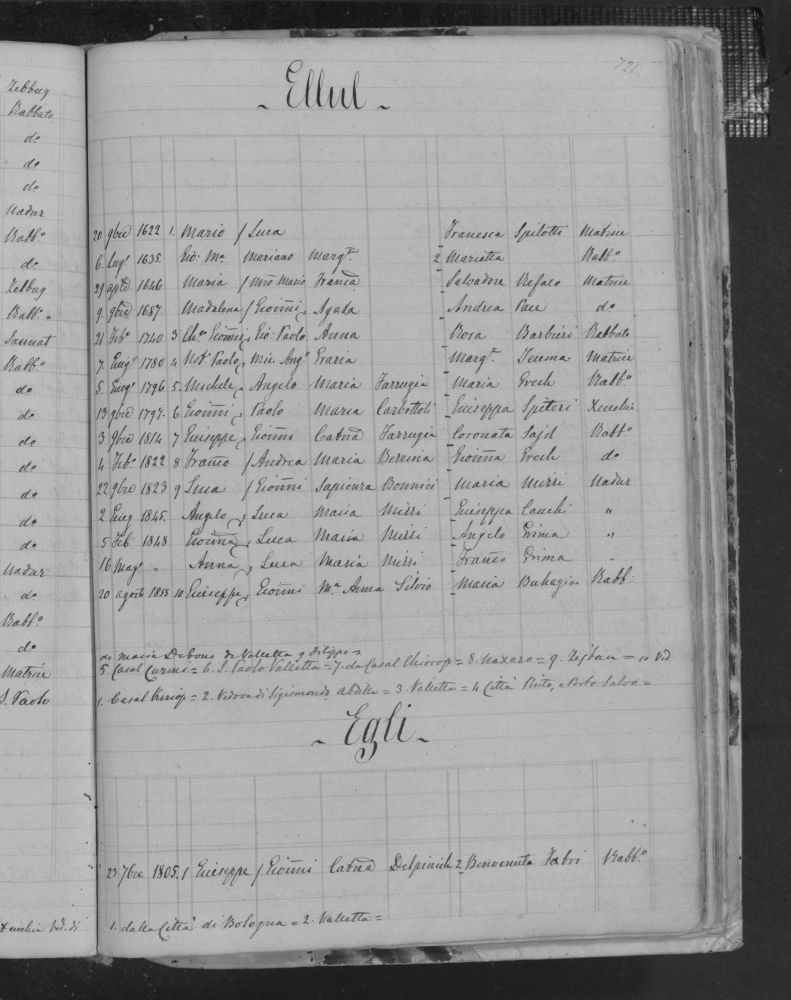 Zebbug
Rabbato
do
do
do
Nadur
Rabb.o
do
Zebbug
Rabb.o
Sannat
Rabb.o
do
do
do
do
do
do
do
Nadur
do
Rabb.o
do
Matrice
S. Paolo
Ved. di
721
- Ellul -
20 9bre 1622 1. Mario / Luca Francesca Spilotti Matrice
6 Lug.o 1635. Gio: M.a Mariano Marg.ta 2 Marietta Rabb.o
29 ag.to 1646 Maria / Mro Mario Franca Salvadore Refalo Matrice
9 9bre 1687. Madalena / Gioñi Agata Andrea Pace do
21 Feb.o 1740 3 Gioñi Gio. Paolo Anna Rosa Barbieri Rabbato
7. Giug.o 1780 4 Not. Paolo Mic. Ang.o Grazia Marg.ta Matrice
5. Giug.o 1796 5. Michele Angelo Maria Farrugia Maria Grech Rabb.o
13 9bre 1797. 6 Gioñi Paolo Maria Carbottoli Giuseppa Spiteri Xeuchia
3 9bre 1814 7 Giuseppe Gioñi Catña Farrugia Coronata Said Rabb.o
4 Feb.o 1822 8 Franco / Andrea Maria Bezzina Gioñna Grech do
22 9bre 1823 9 Luca / Gioñi Sapienza Bonnici Maria Mizzi Nadur
2 Giug 1845. Angelo Luca Maria Mizzi Giuseppa Cauchi "
5 Feb 1848 Gioñna Luca Maria Mizzi Angelo Grima "
16 Mag.o " Anna Luca Maria Mizzi Franco Grima "
20 agosto 1855 10 Giuseppe Gioñni M.a Anna Silvio Maria Buhagiar Rabb.
di Maria Debono da Valletta q Filippo =
5. Casal Curmi = 6. S. Paolo Valletta = 7. da Casal Chircop = 8. Naxaro = 9. Zejtun = 10 Ved.
1. Casal Kircop = 2. Vedova di Sigismondo Abdilla = 3. Valletta = 4 Città Pinto, e Porto Salvo =
- Egli -
23. 7bre 1805. 1 Giuseppe / Gioñi Catña Delpinich 2 Benvenuta Fabri Rabb.o
1. dalla Città di Bologna = 2. Valletta =